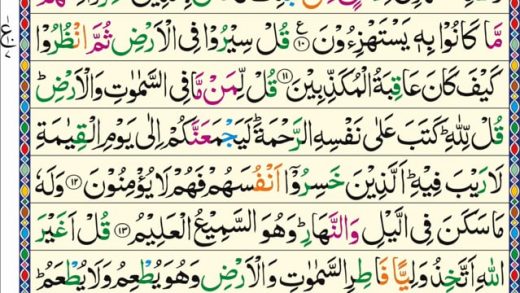 مَّا كَانُوۡا بِهٖ يَسۡتَهۡزِءُوۡنَ ۱۰ قُلۡ سِيۡرُوۡا فِى الۡاَرۡضِ ثُمَّ انْظُرُوۡا
كَيۡفَ كَانَ عَاقِبَةُ الۡمُكَذِّبِيۡنَ ۱۱ قُلْ لِّمَنۡ مَّا فِى السَّمٰوٰتِ وَالۡاَرۡضِ ؕ
قُلْ لِّلّٰهِ ؕ كَتَبَ عَلٰى نَفۡسِهِ الرَّحۡمَةَ ؕ لَيَجۡمَعَنَّكُمۡ اِلٰى يَوۡمِ الۡقِيٰمَةِ
لَا رَيۡبَ فِيۡهِ ؕ اَلَّذِيۡنَ خَسِرُوۡۤا اَنۡفُسَهُمۡ فَهُمۡ لَا يُؤۡمِنُوۡنَ ۱۲ وَلَهٗ
مَا سَكَنَ فِى الَّيۡلِ وَالنَّهَارِ ؕ وَهُوَ السَّمِيۡعُ الۡعَلِيۡمُ ۱۳ قُلۡ اَغَيۡرَ
اللّٰهِ اَتَّخِذُ وَلِيًّا فَاطِرِ السَّمٰوٰتِ وَالۡاَرۡضِ وَهُوَ يُطۡعِمُ وَلَا يُطۡعَمُ ؕ